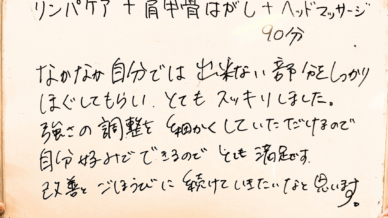 リンパケア + 肩甲骨はがし + ヘッドマッサージ
90分
なかなか自分では 出来ない部分をしっかり
ほぐしてもらい、とても スッキリしました。
強さの調整を 細かくしていただけるので
自分好みで できるので とても 満足です。
改善と ごほうびに 続けていきたいなと思います。